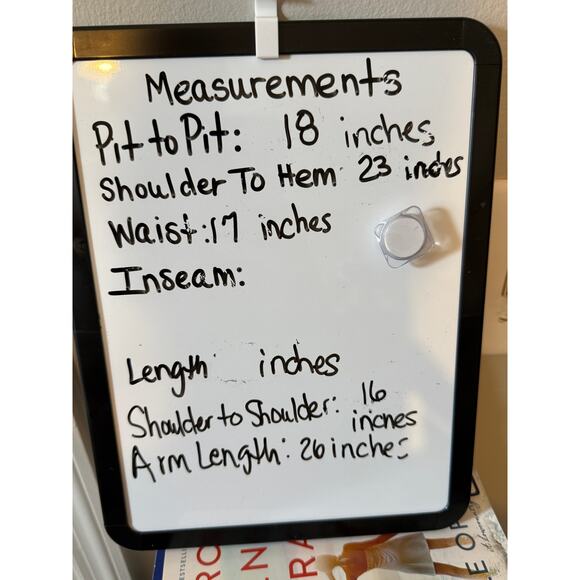 Measurements
Pit to Pit: 18 inches
Shoulder To Hem 23 inches
Waist: 17 inches
Inseam:
Length inches
Shoulder to Shoulder: 16
inches
Arm Length: 26 inches
BESTSELL